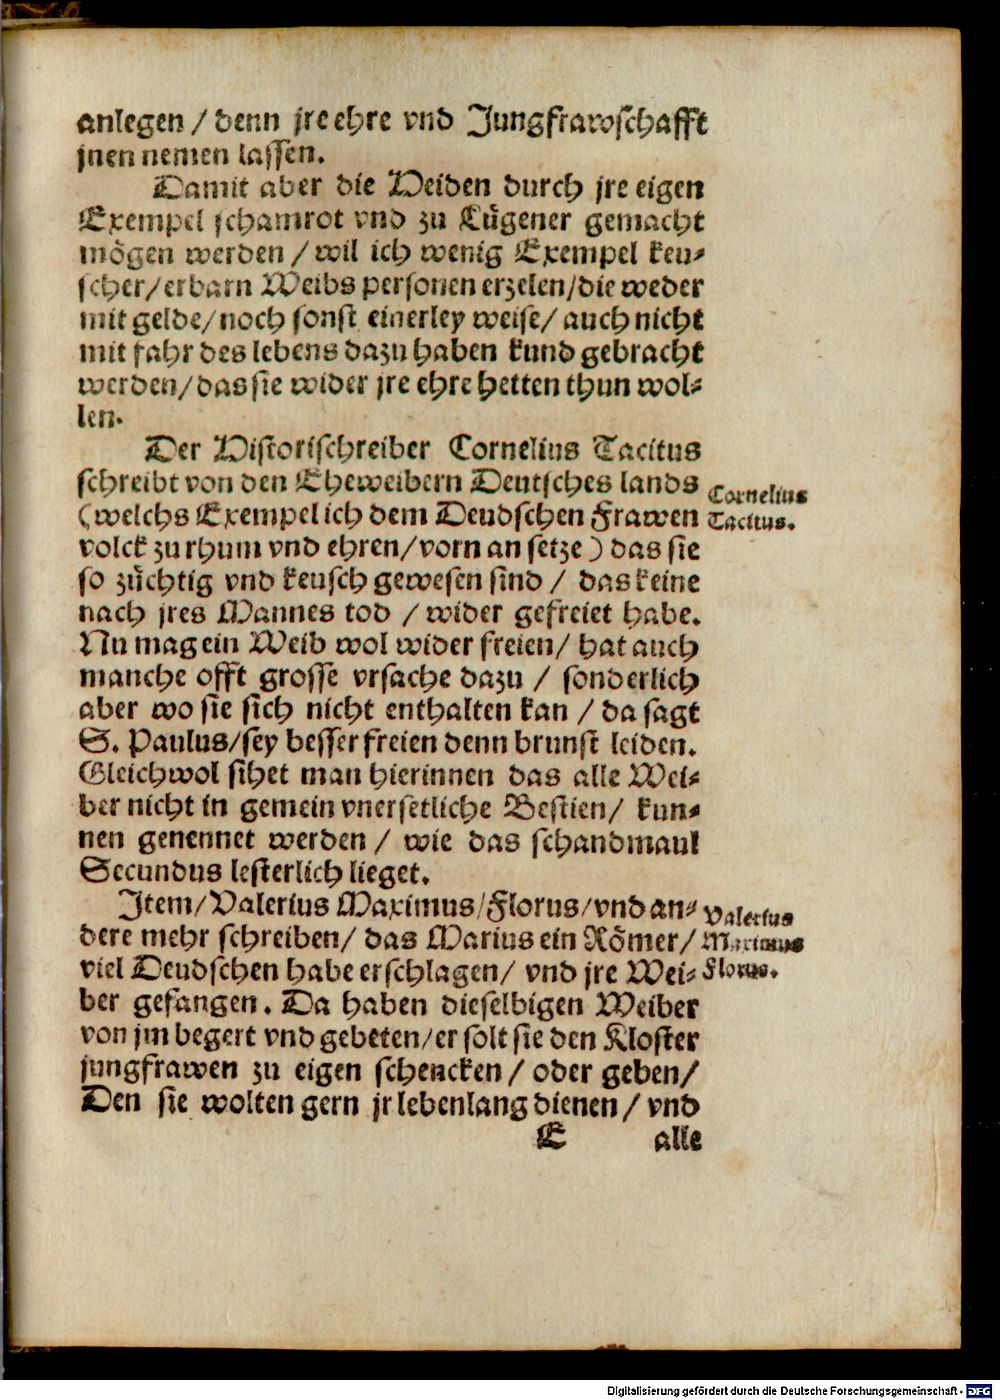 anlegen / denn jre ehre vnd Jungfrawschafft
jnen nemen lassen.
Damit aber die Heiden durch jre eigen
Exempel schamrot vnd zu Lügener gemacht
mögen werden / wil ich wenig Exempel keu⸗
scher/ erbarn Weibs personen erzelen/ die weder
mit gelde/ noch sonst einerley weise/ auch nicht
mit fahr des lebens dazu haben kund gebracht
werden/ das sie wider jre ehre hetten thun wol⸗
len.
Der Historischreiber Cornelius Tacitus
schreibt von den Eheweibern Deutsches lands
Cornelius
(welchs Exempel ich dem Deudschen Frawen
Tacitus.
volck zu rhum vnd ehren/ vorn an setze) das sie
so züchtig vnd keusch gewesen sind / das keine
nach jres Mannes tod / wider gefreiet habe.
Nu mag ein Weib wol wider freien/ hat auch
manche offt grosse vrsache dazu / sonderlich
aber wo sie sich nicht enthalten kan / da sagt
S. Paulus/ sey besser freien denn brunst leiden.
Gleichwol sihet man hierinnen das alle Wei⸗
ber nicht in gemein vnersetliche Bestien/ kun⸗
nen genennet werden / wie das schandmaul
Secundus lesterlich lieget.
Item/ Valerius Maximus/ Florus/ vnd an⸗
Valerius
dere mehr schreiben/ das Marius ein Römer/
Maximus
viel Deudschen habe erschlagen/ vnd jre Wei⸗
Florus.
ber gefangen. Da haben dieselbigen Weiber
von jm begert vnd gebeten/ er solt sie den Kloster
jungfrawen zu eigen schencken / oder geben/
Den sie wolten gern jr lebenlang dienen / vnd
E alle
Digitalisierung gefördert durch die Deutsche Forschungsgemeinschaft - DFG